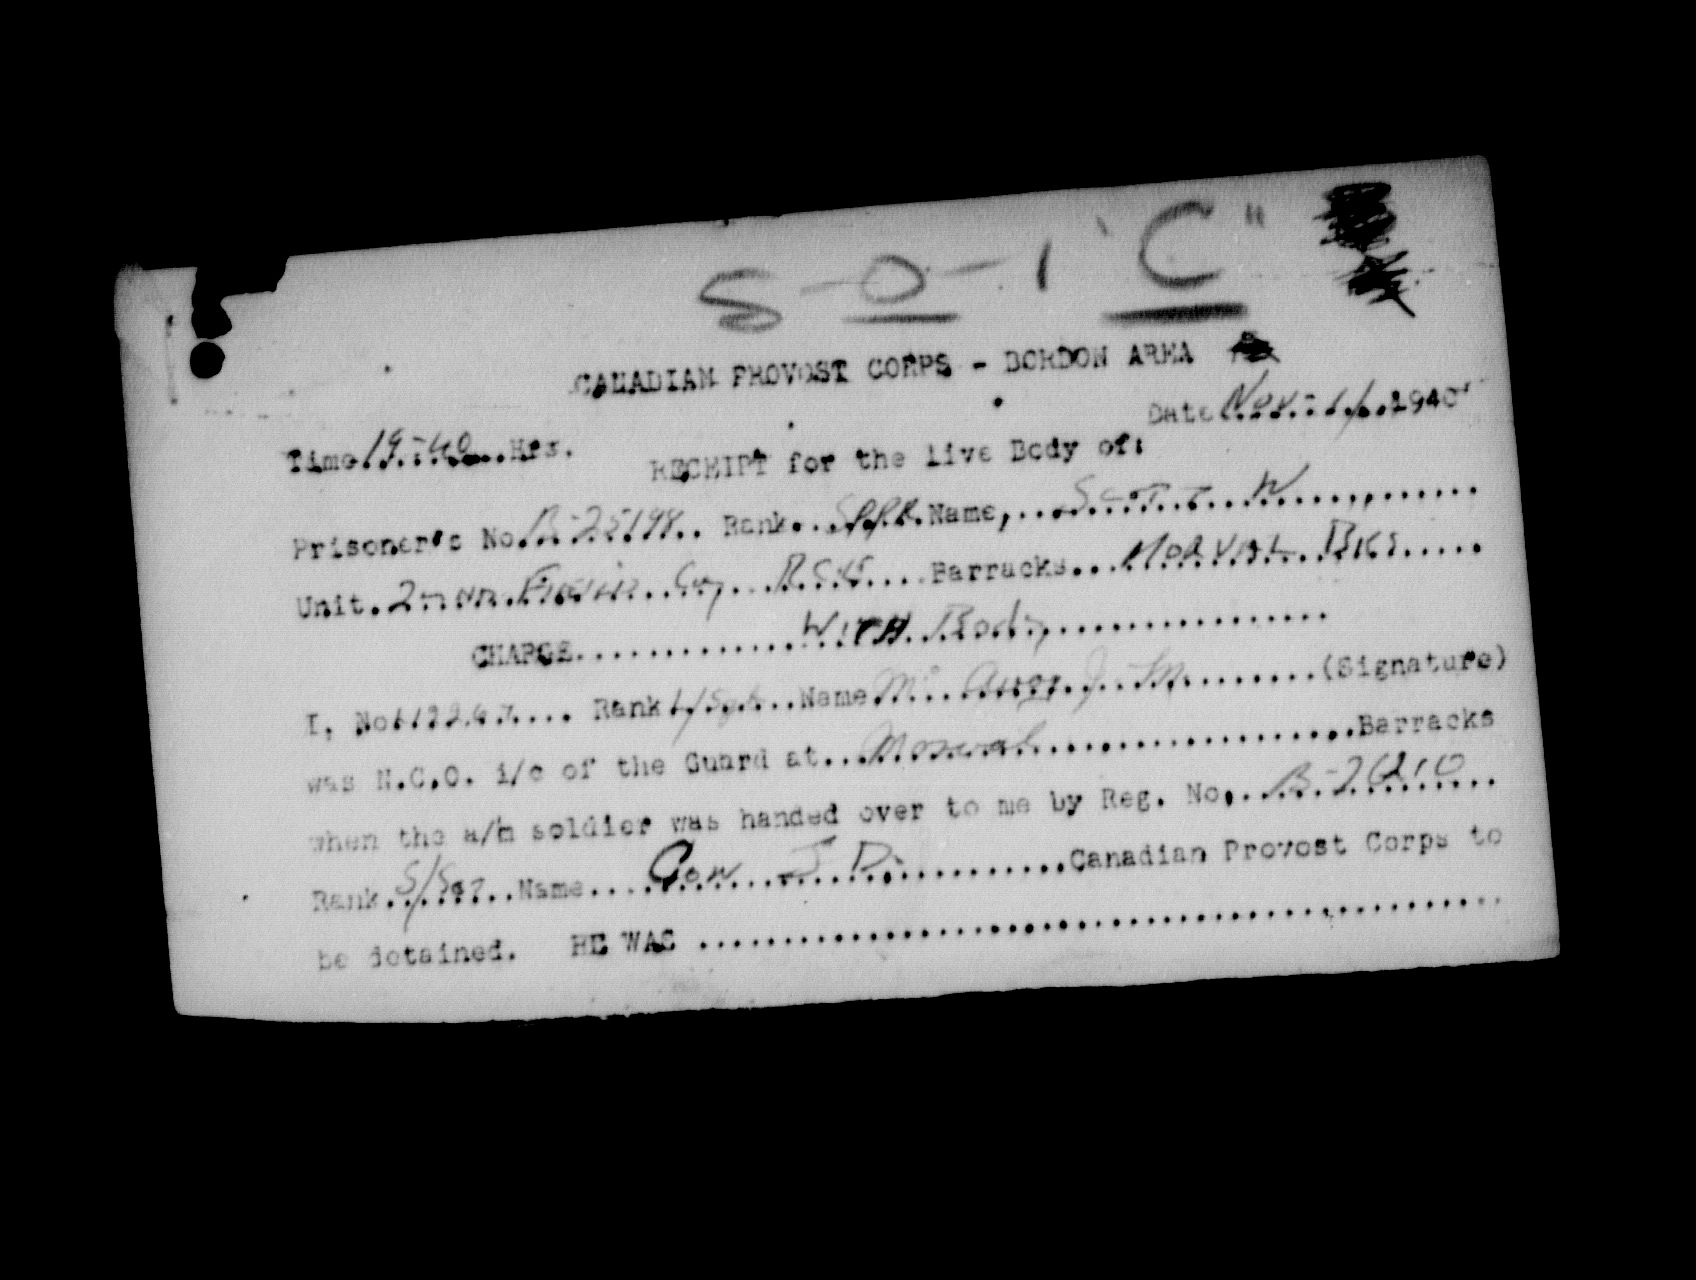 S-O-1 "C"
CANADIAN PROVOST CORPS - BORDON AREA
Date Nov-11.1940
Time 19-40 Hrs.
RECEIPT for the live Body of:
Prisoner's No. B-25198.. Rank...SPR. Name,....SCOTT W..........
Unit. 2ND Coy Barracks...MORVAL BKS.....
CHARGE..............WITH Body..................
I, No. .... Rank L/Sgt...Name J. M.........(Signature)
was N.C.O. i/c of the Guard at...Morval..................Barracks
when the a/m soldier was handed over to me by Reg. No,..B-26210..
Rank.S/SGT..Name....Gow J D............Canadian Provost Corps to
be detained. HE WAS ...................................